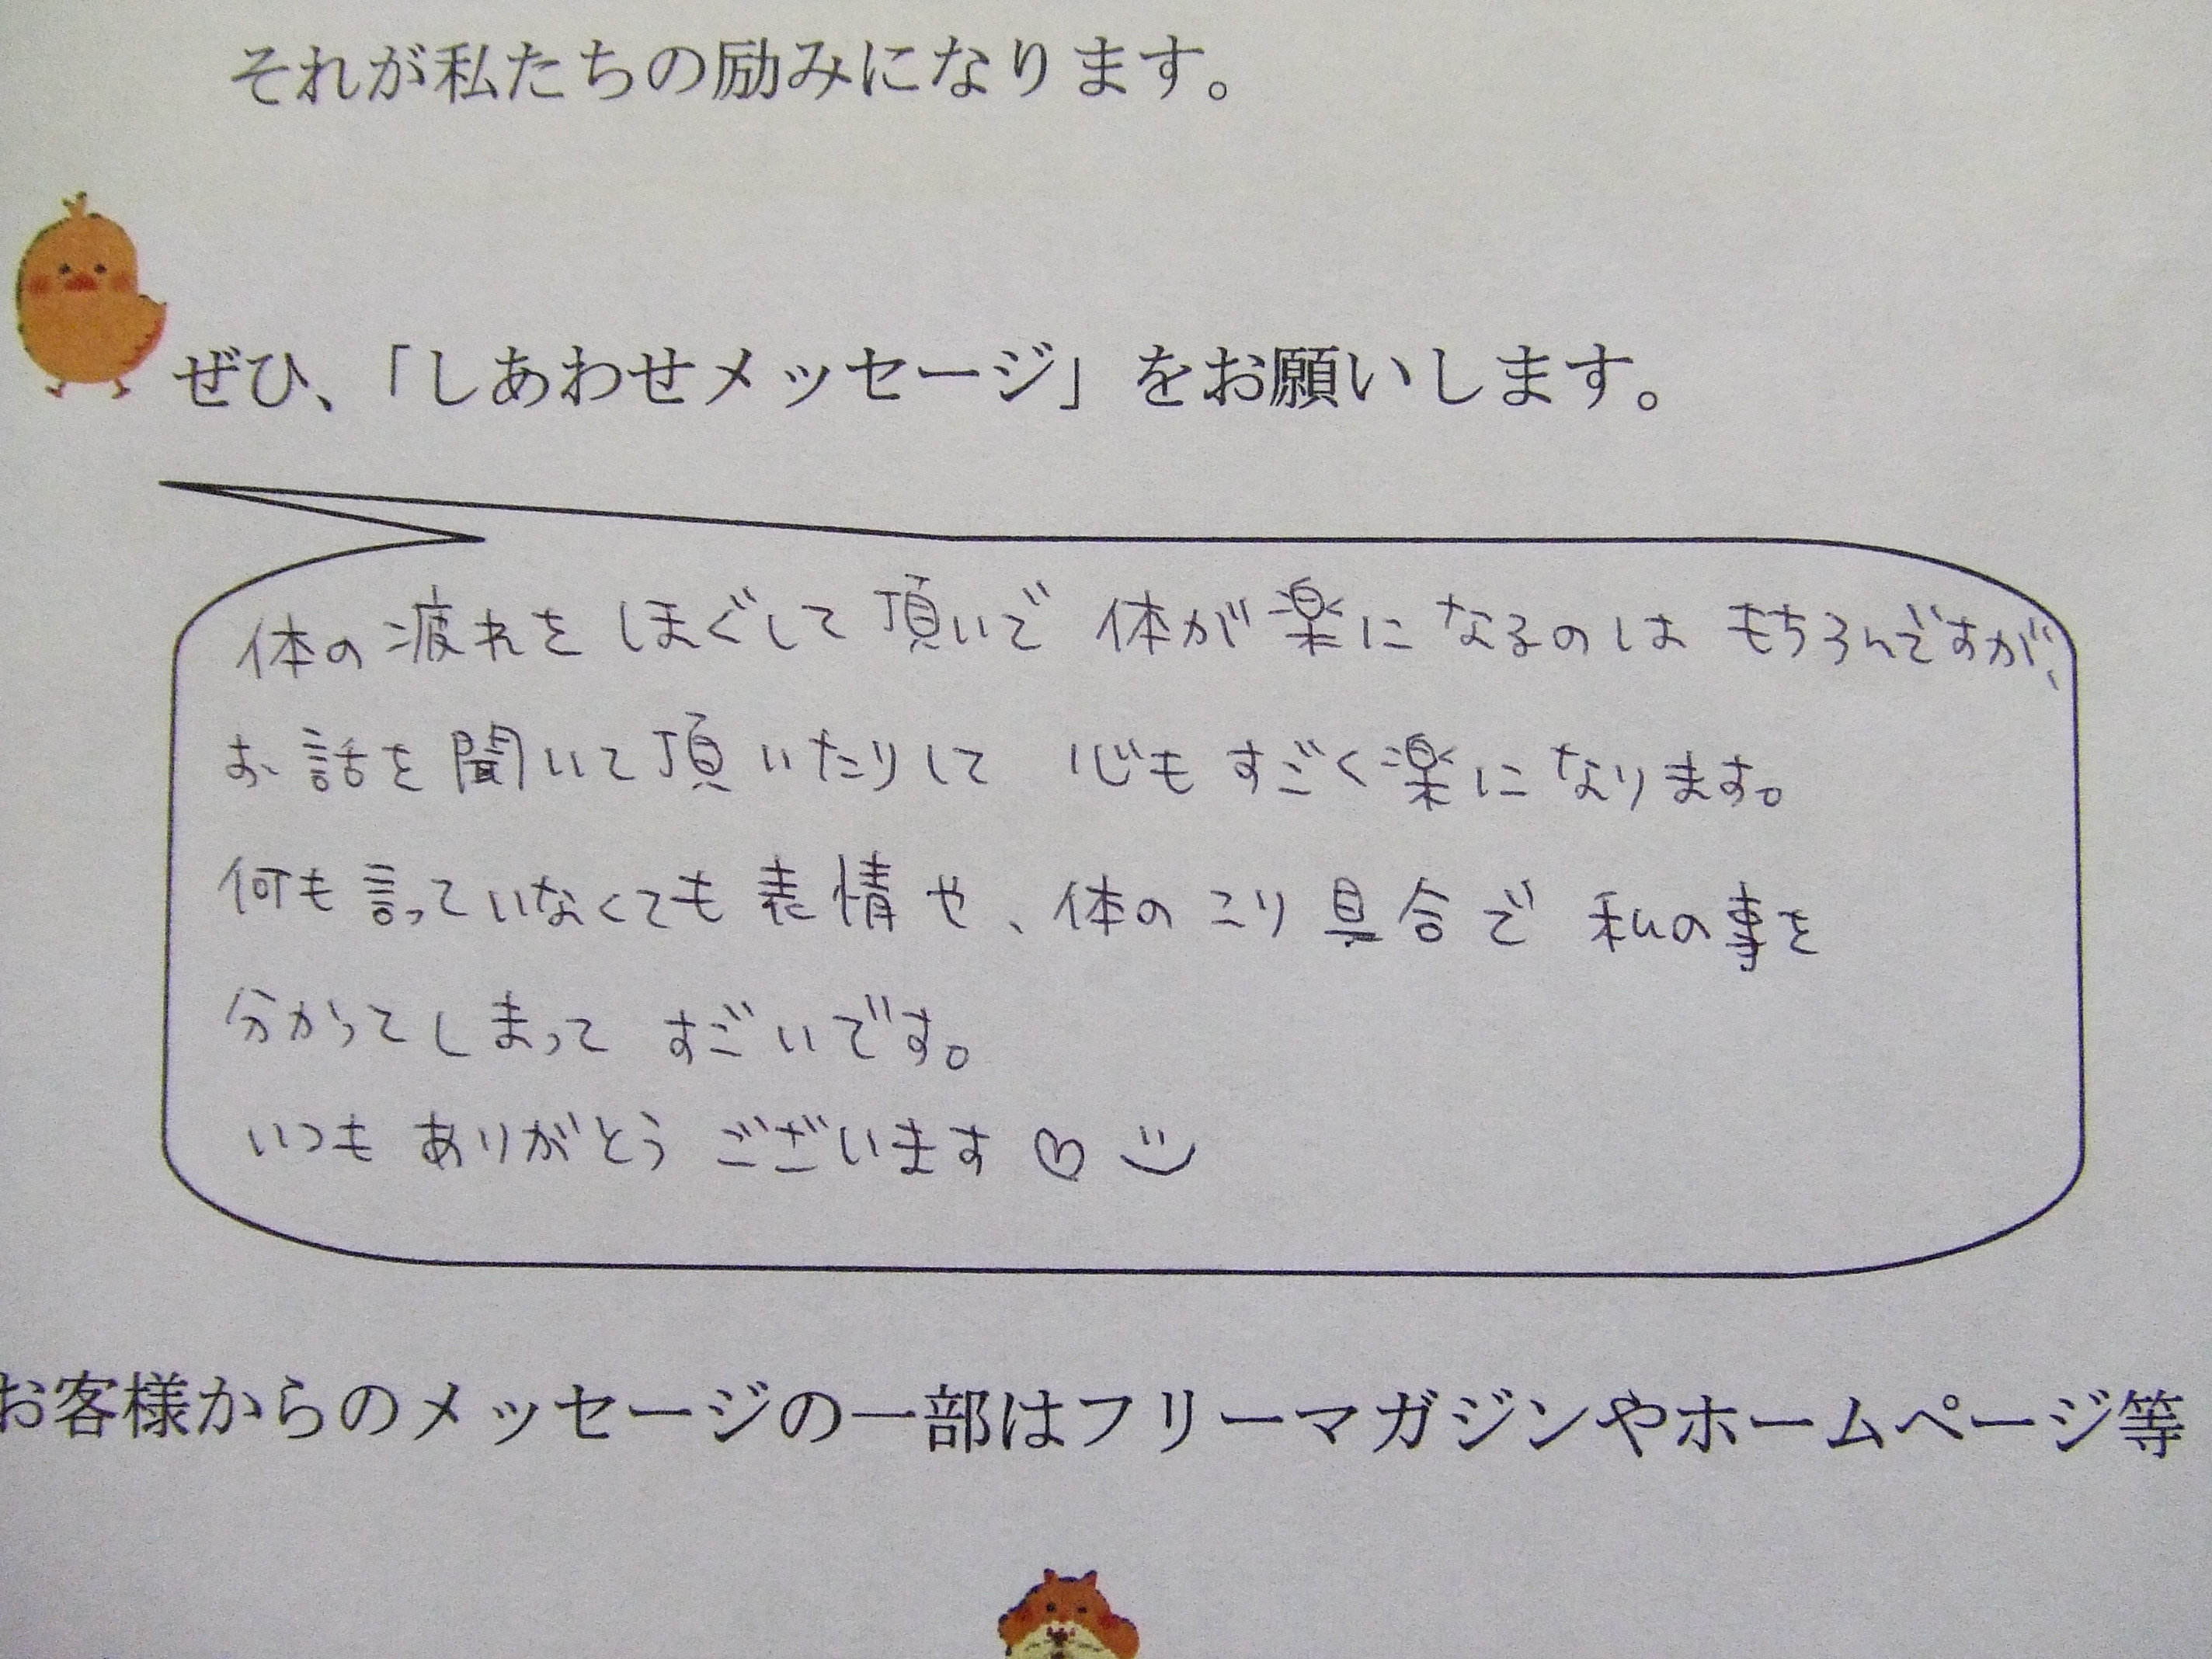 それが私たちの励みになります。
ぜひ、「しあわせメッセージ」をお願いします。
体の疲れをほぐして頂いで体が楽になるのはもちろんですが、
お話を聞いて頂いたりして心もすごく楽になります。
何も言っていなくても表情や、体のこり具合で私の事を
分かってしまってすごいです。
いつもありがとうございます♡
お客様からのメッセージの一部はフリーマガジンやホームページ等